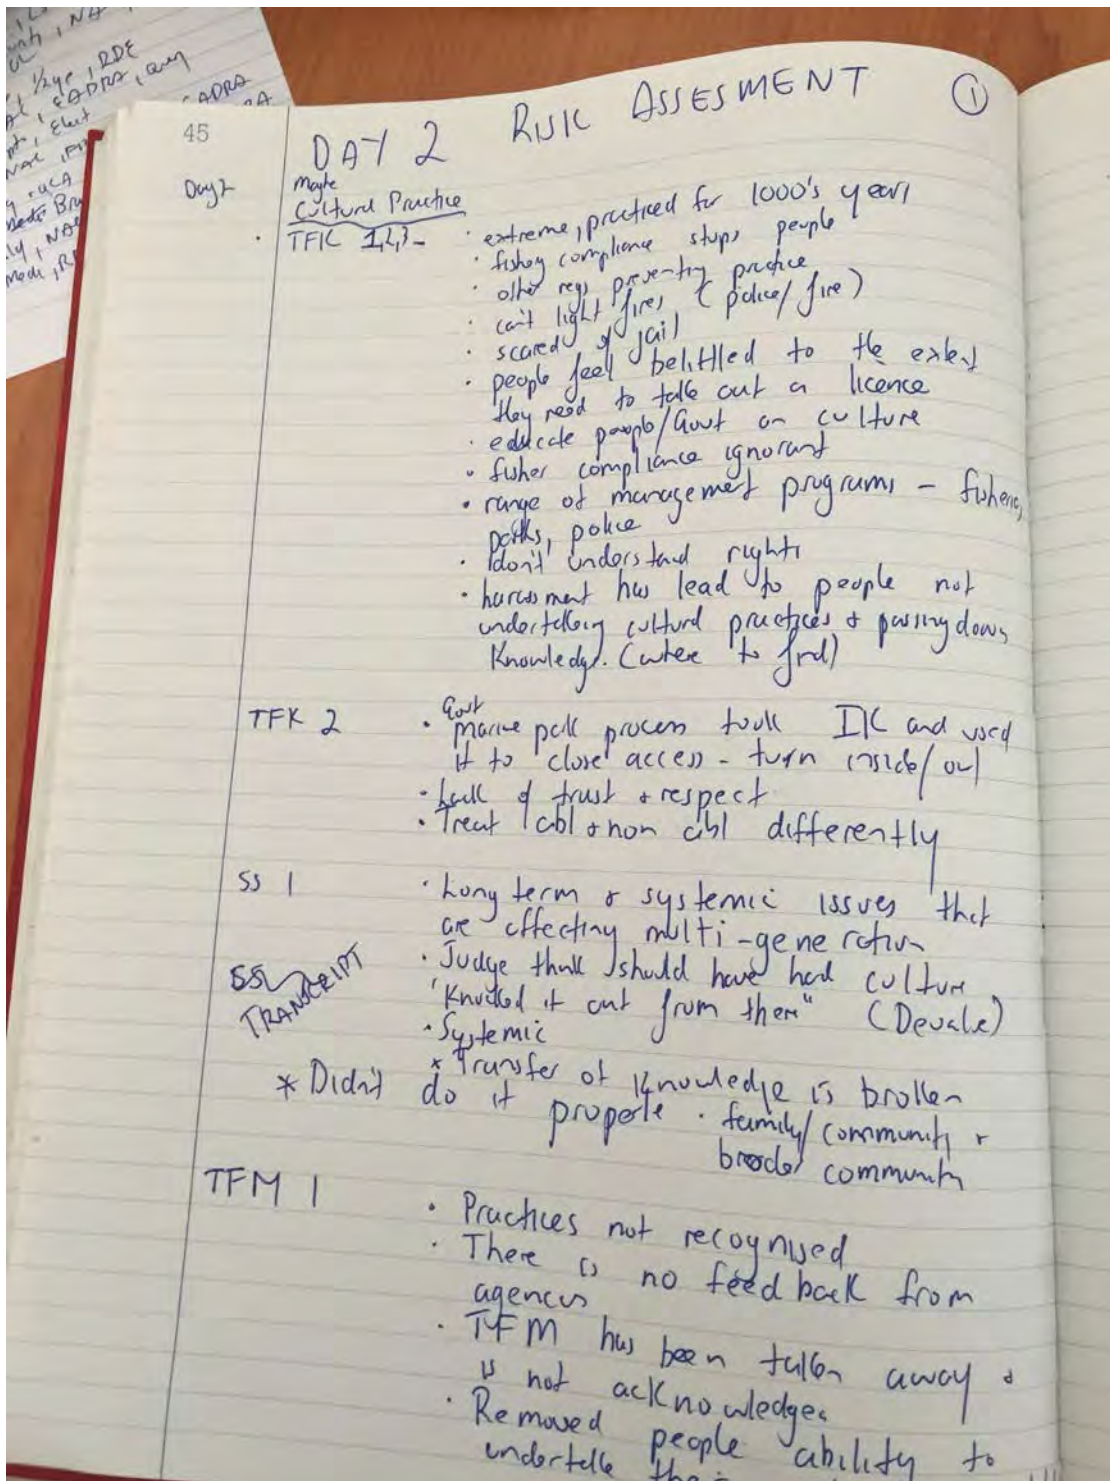 1/2ye, RDE
EADRA
45
DAY 2 RISK ASSESMENT ①
Day 2
Maybe
Cultural Practice
TFK 1,2,3 -
· extreme, practiced for 1000's years
· fishery compliance stops people
· other regs preventing practice
· can't light fires (police/fire)
· scared of jail
· people feel belittled to the extent
they need to take out a licence
· educate people/Govt on culture
· fisher compliance ignorant
· range of management programs - fisheries,
parks, police
· don't understand rights
· harassment has lead to people not
undertaking cultural practices & passing down
Knowledge. (where to find)
TFK 2
Govt
· marine park process took IK and used
it to close access - turn inside/out
· Lack of trust & respect
· Treat abl & non abl differently
SS 1
· Long term & systemic issues that
are effecting multi-generation
SS1
TRANSCRIPT
· Judge think should have had culture
'Knocked it out from them" (Devale)
· Systemic
* Transfer of Knowledge is broken
* Didn't do it properle · family/community &
broader community
TFM 1
· Practices not recognised
· There is no feed back from
agencies
· TFM has been taken away &
is not acknowledged
· Removed people ability to
undertake their